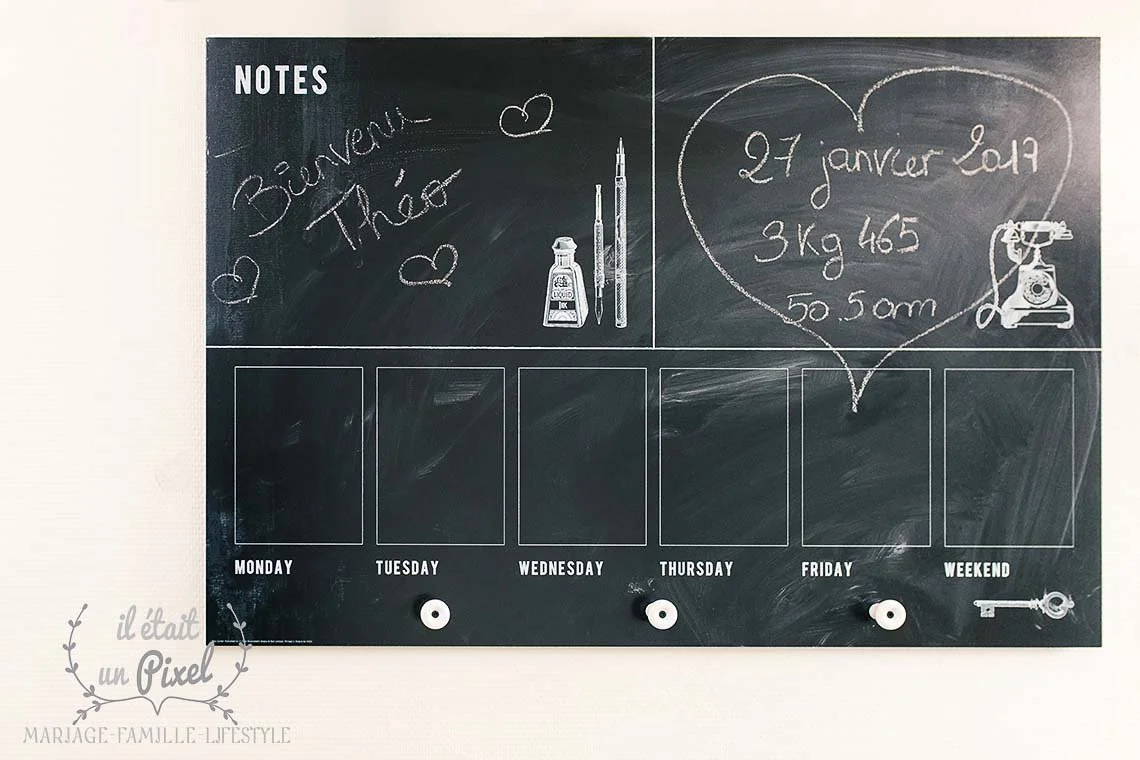 NOTES
Bienvenu
Théo
27 janvier 2017
3Kg 465
50.5cm
LIQUID
INK
MONDAY
TUESDAY
WEDNESDAY
THURSDAY
FRIDAY
WEEKEND
il était
un Pixel
MARIAGE-FAMILLE-LIFESTYLE